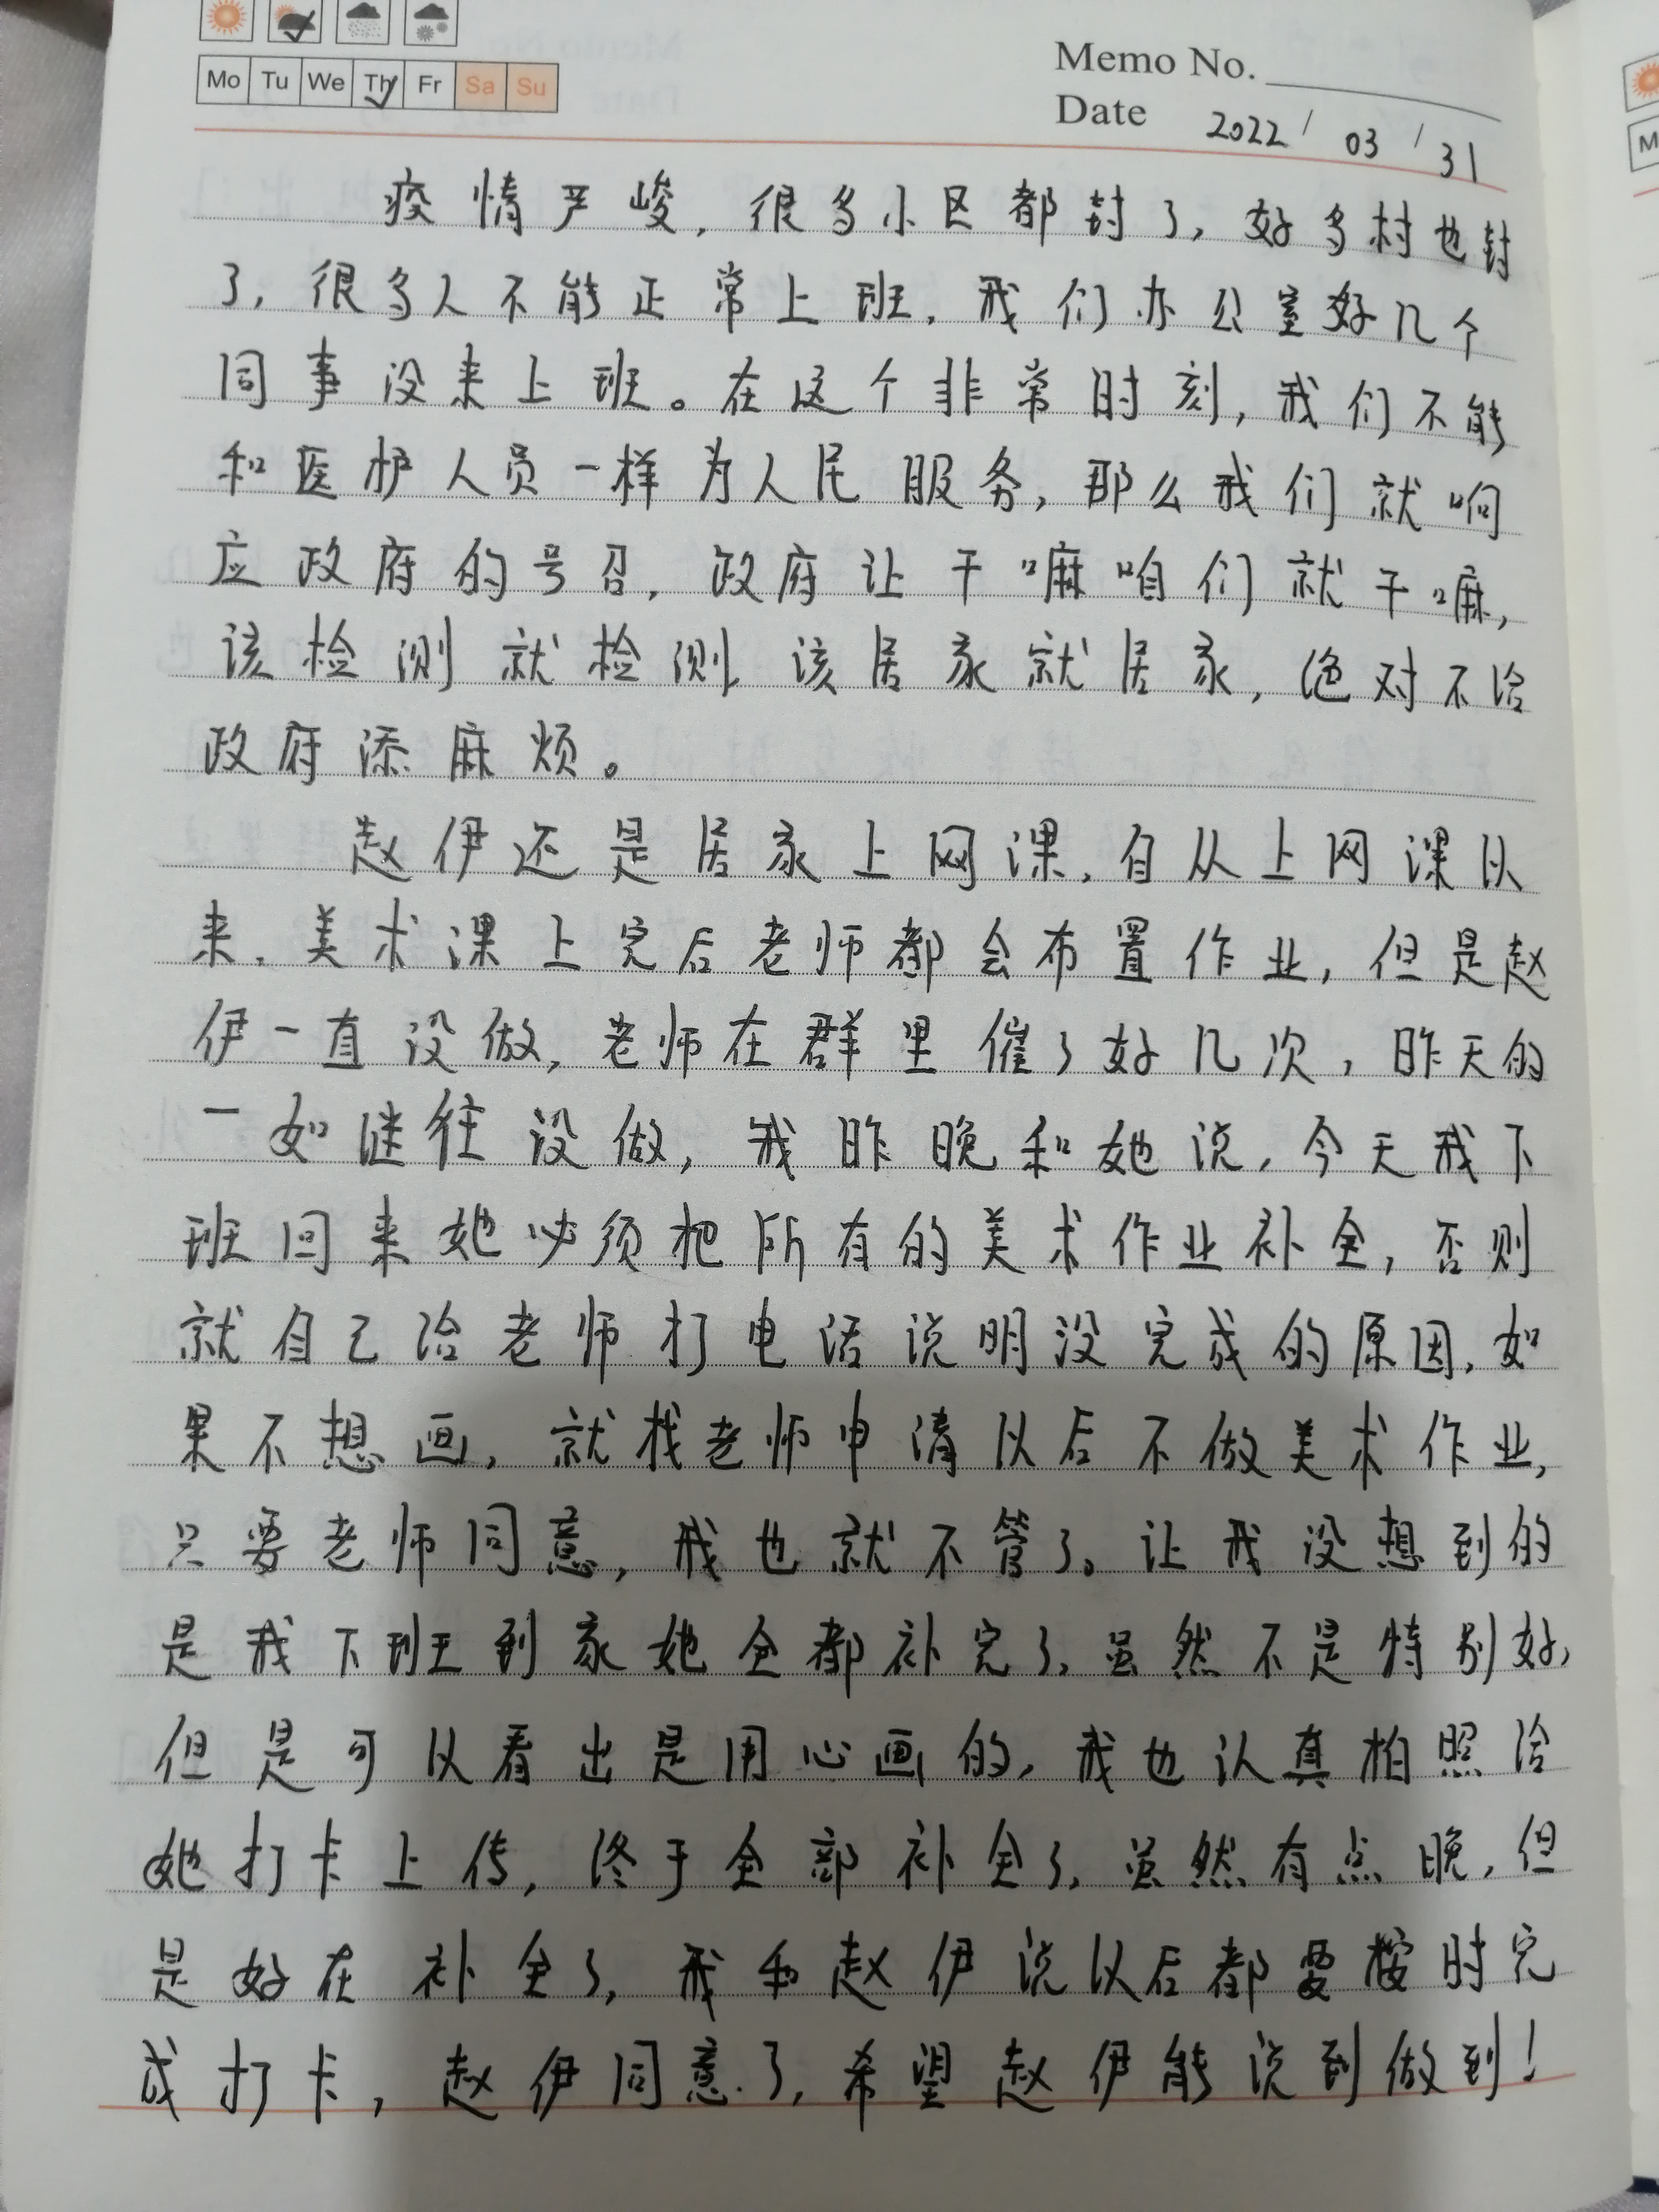 Mo Tu We Th Fr Sa Su
Memo No.
Date 2022 / 03 / 31
疫情严峻，很多小区都封了，好多村也封
了，很多人不能正常上班，我们办公室好几个
同事没来上班。在这个非常时刻，我们不能
和医护人员一样为人民服务，那么我们就响
应政府的号召，政府让干嘛咱们就干嘛，
该检测就检测，该居家就居家，绝对不给
政府添麻烦。
赵伊还是居家上网课，自从上网课以
来，美术课上完后老师都会布置作业，但是赵
伊一直没做，老师在群里催了好几次，昨天的
一如继往没做，我昨晚和她说，今天我下
班回来她必须把所有的美术作业补全，否则
就自己给老师打电话说明没完成的原因，如
果不想画，就找老师申请以后不做美术作业，
只要老师同意，我也就不管了。让我没想到的
是我下班到家她全都补完了，虽然不是特别好，
但是可以看出是用心画的，我也认真拍照给
她打卡上传，终于全部补全了，虽然有点晚，但
是好在补全了，我和赵伊说以后都要按时完
成打卡，赵伊同意了，希望赵伊能说到做到！
M